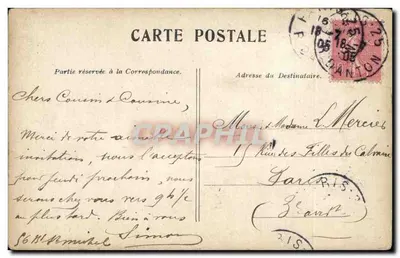 CARTE POSTALE
Partie réservée à la Correspondance.
Adresse du Destinataire.
Chers Cousin & Cousine,
Merci de votre
invitation, nous l'acceptons
pour jeudi prochain, nous
serons chez vous vers 9h 1/2
au plus tard. Bien à vous
Simon
56 Bd St michel
Mons. & Madame L Mercier
15 Rue des Filles du Calvaire
Paris
3e arrt
PARIS 25
18-7
05
R. DANTON